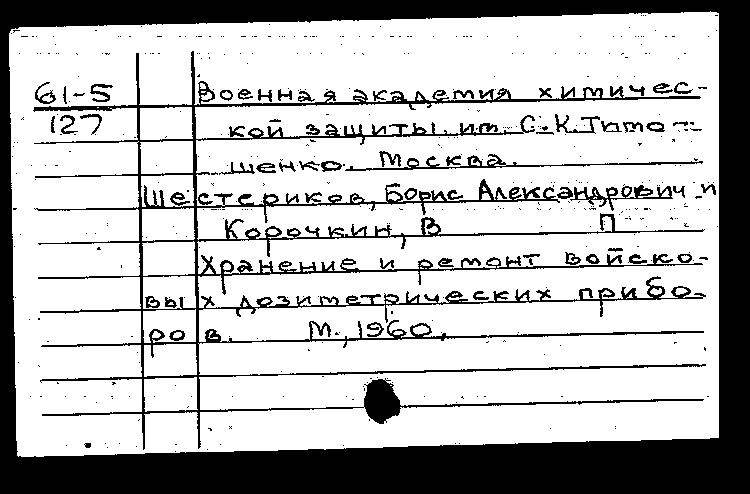 61-5 Военная академия химичес-
127
кой защиты им. С.К. Тимо-
шенко. Москва.
Шестериков, Борис Александрович и
Корочкин, В П
Хранение и ремонт войско-
вых дозиметрических прибо-
ров. М., 1960.